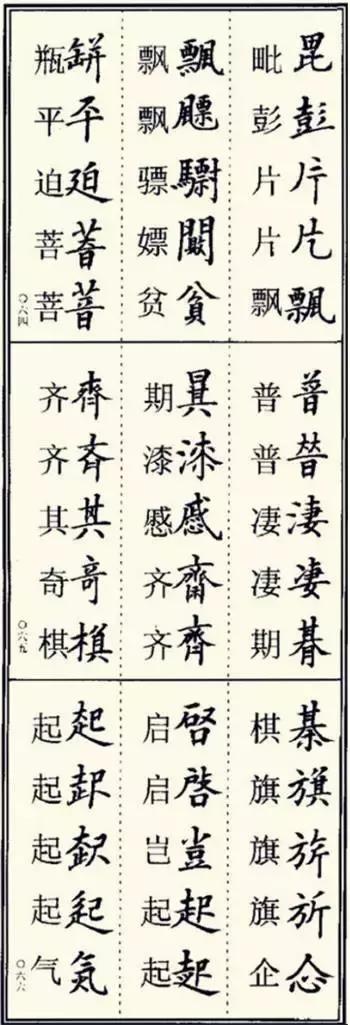 毘彭片片飄
毗彭片片飘
飄
飘飘骠嫖贫
貧
缾平廹
瓶平迫菩菩
〇六四
普暜淒凄朞
普普凄凄期
漆慼齊
期漆慼齐齐
齊斉其竒
齐齐其奇棋
〇六五
棊旗
棋旗旗旗企
啓豈起起
启启岂起起
起起氣
起起起起气
〇六六